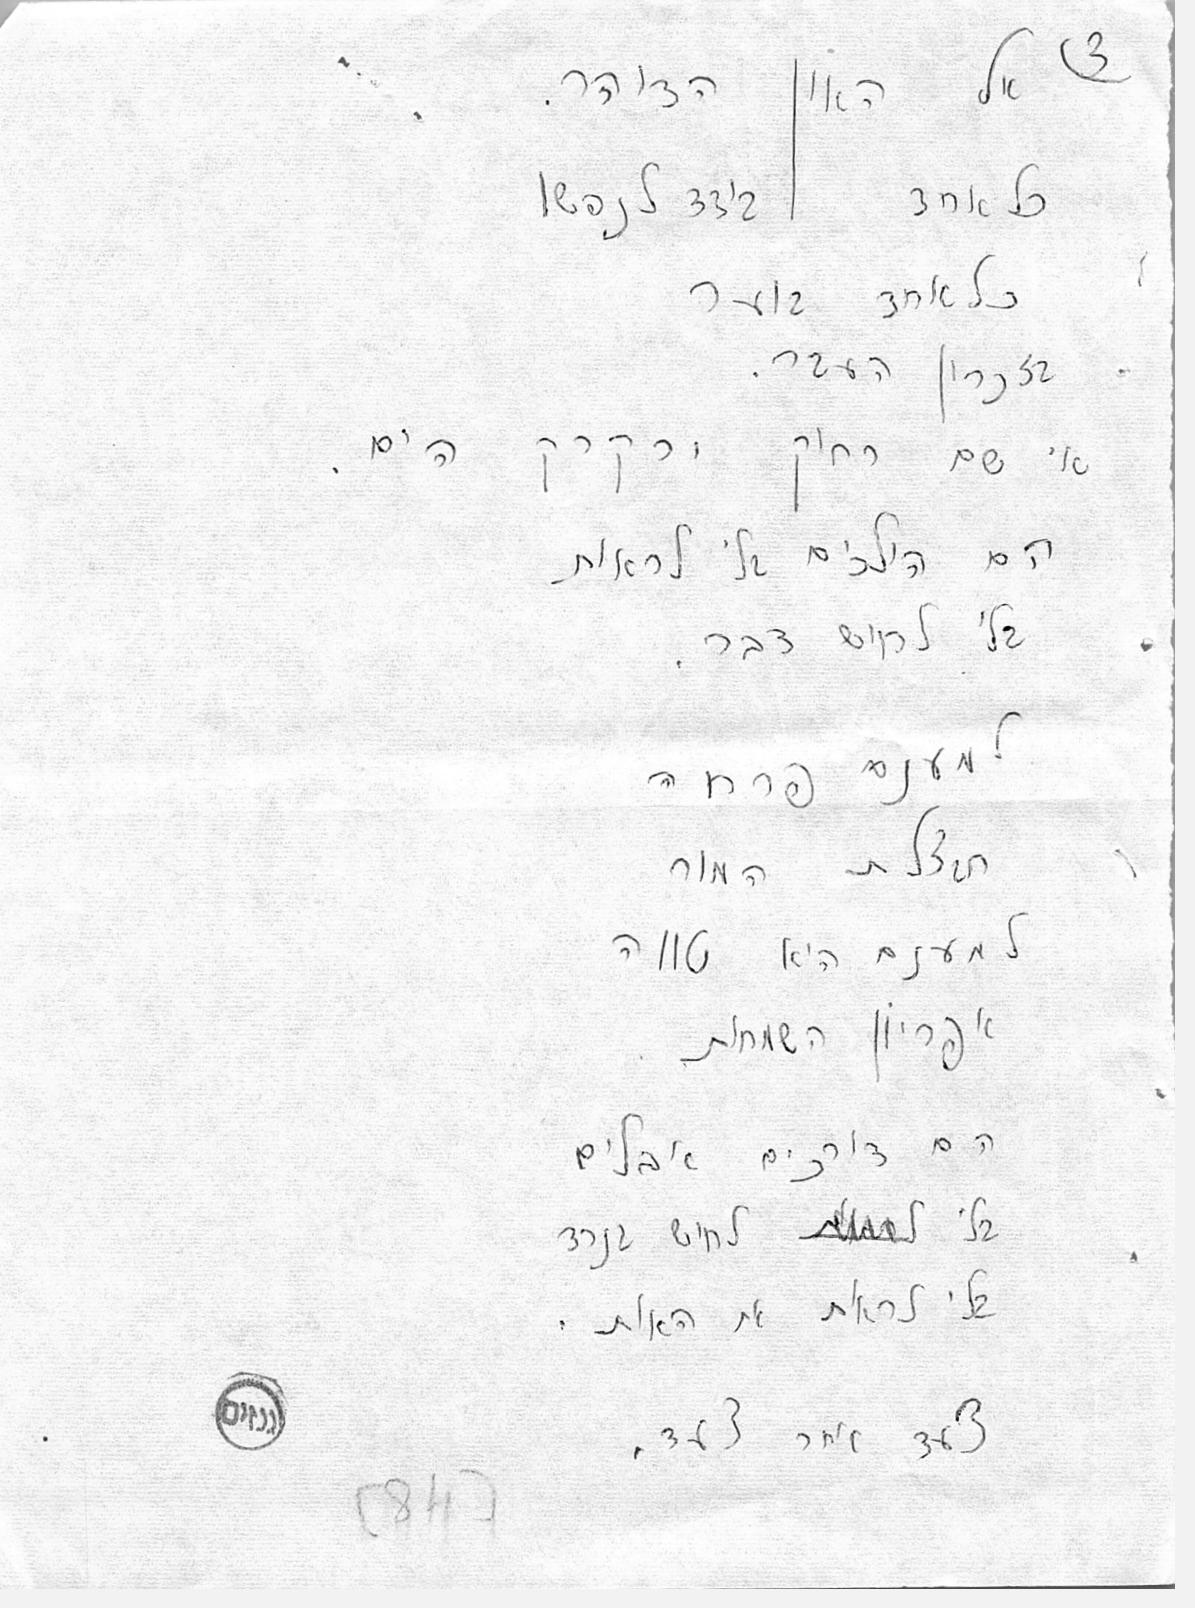 3
אל האון הדוהר.
כל אחד בודד לנפשו
כל אחד בוער
בזכרון העבר.
אי שם רחוק ירקרק הים.
הם הולכים בלי לראות
בלי לחוש דבר.
למענם פרחה
חבצלת המור
למענם היא טווה
אפריון השמחות.
הם דורכים אבלים
בלי לחוש בנרד
בלי לראות את האות.
צעד אחר צעד.
גנזים
[48]